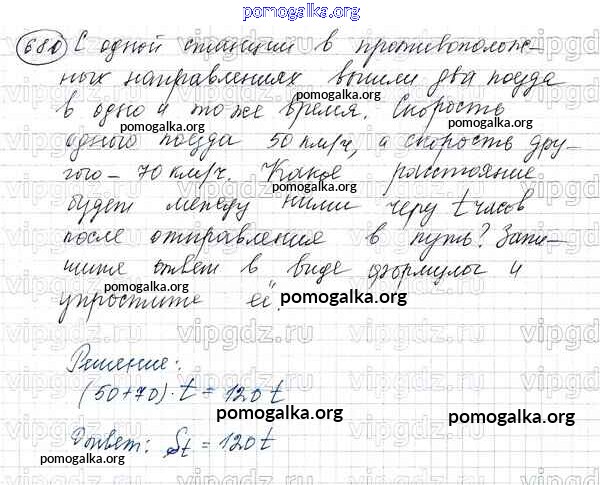 pomogalka.org
680 С одной станции в противополож-
ных направлениях вышли два поезда
pomogalka.org
в одно и тоже время. Скорость
pomogalka.org
одного поезда 50 км/ч, а скорость дру-
гого - 70 км/ч. Какое расстояние
pomogalka.org
будет между ними через t часов
pomogalka.org
после отправления в путь? Запи-
шите ответ в виде формулы и
упростите её.
pomogalka.org
Решение:
(50+70)·t = 120t
pomogalka.org
Ответ: St = 120t
pomogalka.org